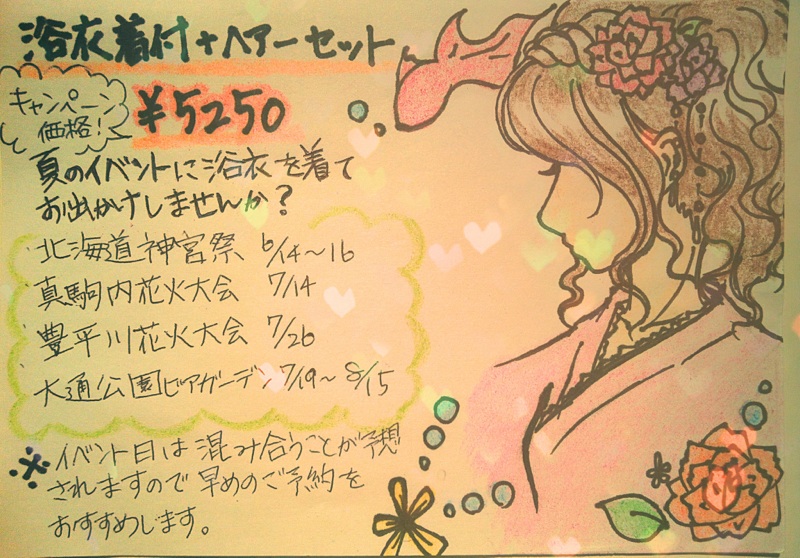 浴衣着付+ヘアーセット
キャンペーン
価格!
¥5250
夏のイベントに浴衣を着て
お出かけしませんか?
北海道神宮祭 6/14~16
真駒内花火大会 7/14
豊平川花火大会 7/26
大通公園ビアガーデン7/19~8/15
※イベント日は混み合うことが予想
されますので早めのご予約を
おすすめします。